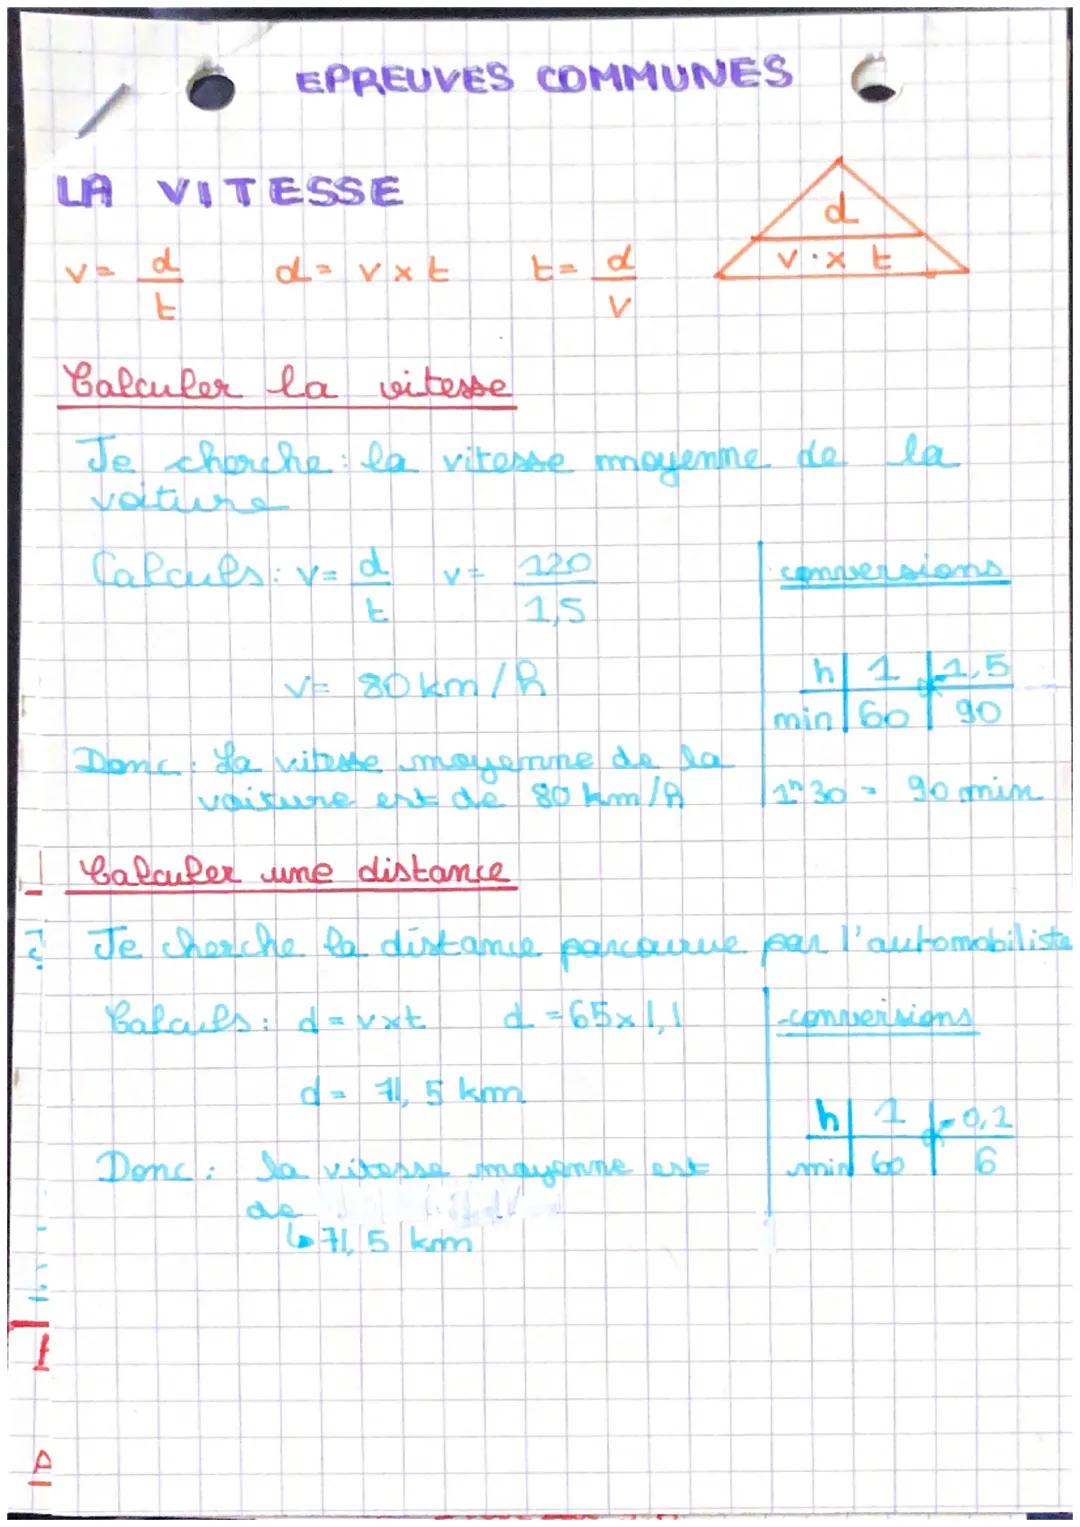 EPREUVES COMMUNES
LA VITESSE
v = d/t   d = v x t   t = d/v
d
v x t
Calculer la vitesse
Je cherche : la vitesse moyenne de la
voiture
Calculs : v = d/t   v = 120/1,5
conversions
v = 80 km/h
h | 1 | 1,5
min | 60 | 90
Donc : La vitesse moyenne de la
voiture est de 80 km/h
1h30 = 90 min
Calculer une distance
Je cherche la distance parcourue par l'automobiliste
Calculs : d = v x t   d = 65 x 1,1
-conversions
d = 71,5 km
h | 1 | 0,1
min | 60 | 6
Donc : la vitesse moyenne est
de
↳ 71,5 km